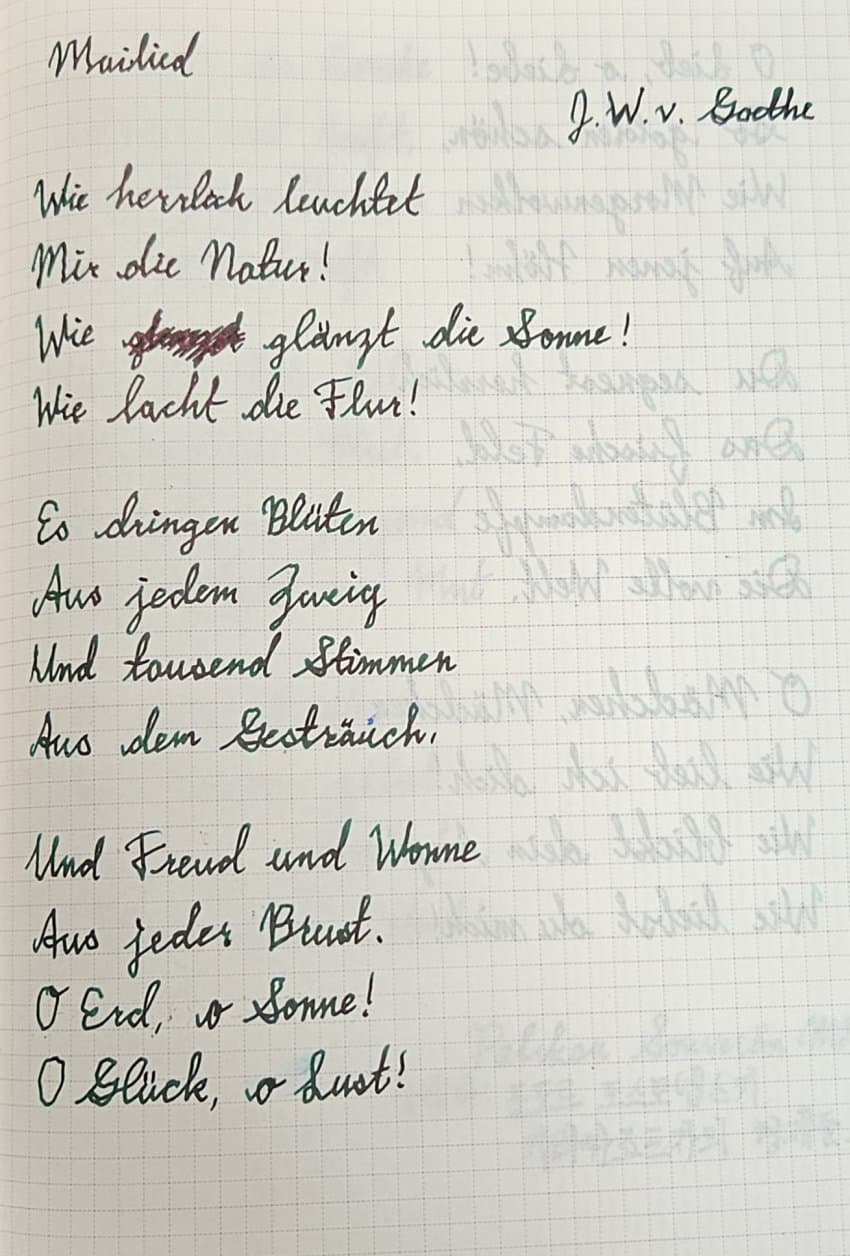 Mailied
J. W. v. Goethe
Wie herrlich leuchtet
Mir die Natur!
Wie glänzt die Sonne!
Wie lacht die Flur!
Es dringen Blüten
Aus jedem Zweig
Und tausend Stimmen
Aus dem Gesträuch,
Und Freud und Wonne
Aus jeder Brust.
O Erd, o Sonne!
O Glück, o Lust!